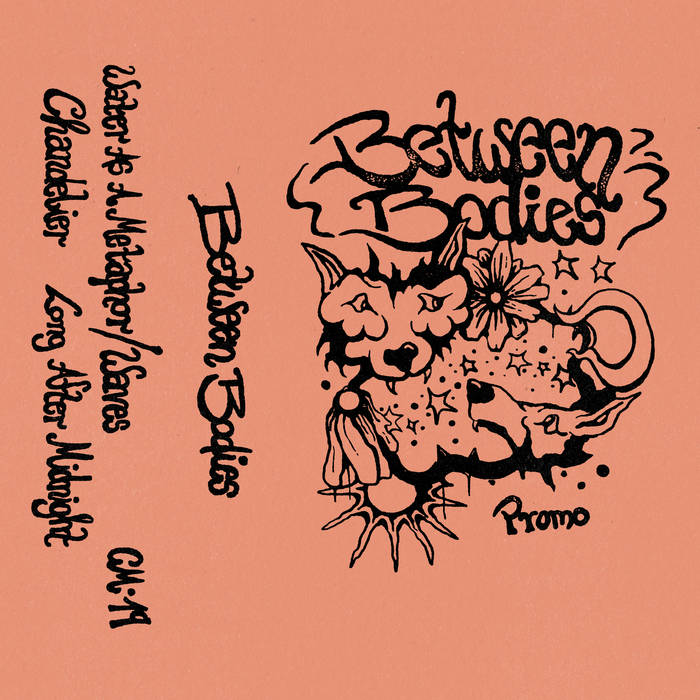 Between
Bodies
Promo
Between Bodies
Water As A Metaphor/Waves
GM-19
Chandelier Long After Midnight